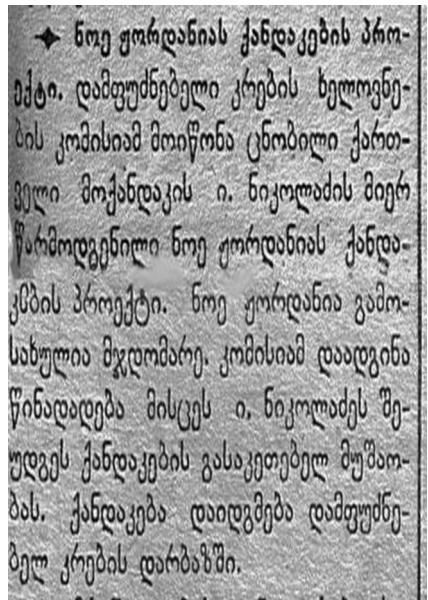 ✦ ნოე ჟორდანიას ქანდაკების პრო-
ექტი. დამფუძნებელი კრების ხელოვნე-
ბის კომისიამ მოიწონა ცნობილი ქართ-
ველი მოქანდაკის ი. ნიკოლაძის მიერ
წარმოდგენილი ნოე ჟორდანიას ქანდა-
კების პროექტი. ნოე ჟორდანია გამო-
სახულია მჯდომარე. კომისიამ დაადგინა
წინადადება მისცეს ი. ნიკოლაძეს შე-
უდგეს ქანდაკების გასაკეთებელ მუშაო-
ბას. ქანდაკება დაიდგმება დამფუძნე-
ბელ კრების დარბაზში.